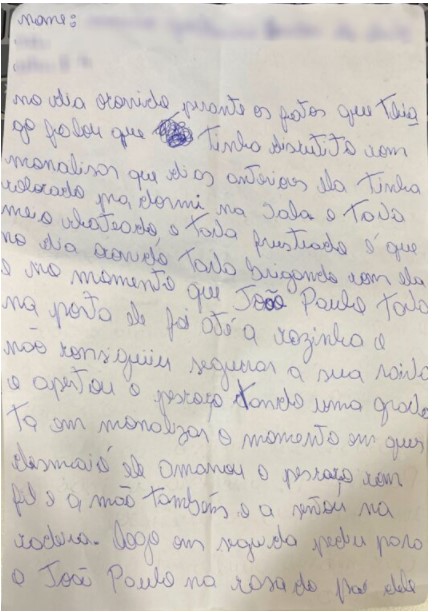 nome:
no dia ocorrido perante os fatos que thia
go falou que tinha discutito com
monalisas que dias anteriores ela tinha
colocado pa dormi na sala e tava
meio chateado e tava frustrado é que
no dia ocorrido tava brigando com ela
e no momento que João Paulo tava
na porta ele foi até a cozinha e
não consiguiu segurar a sua raiva
e apertou o pescoço dando uma grava
ta em monalizas o momento em ques
desmaiô ele amarrou o pescoço com
fil e a mão também e a sentou na
cadeira. logo em seguida pediu para
o João Paulo na casa do pai dele